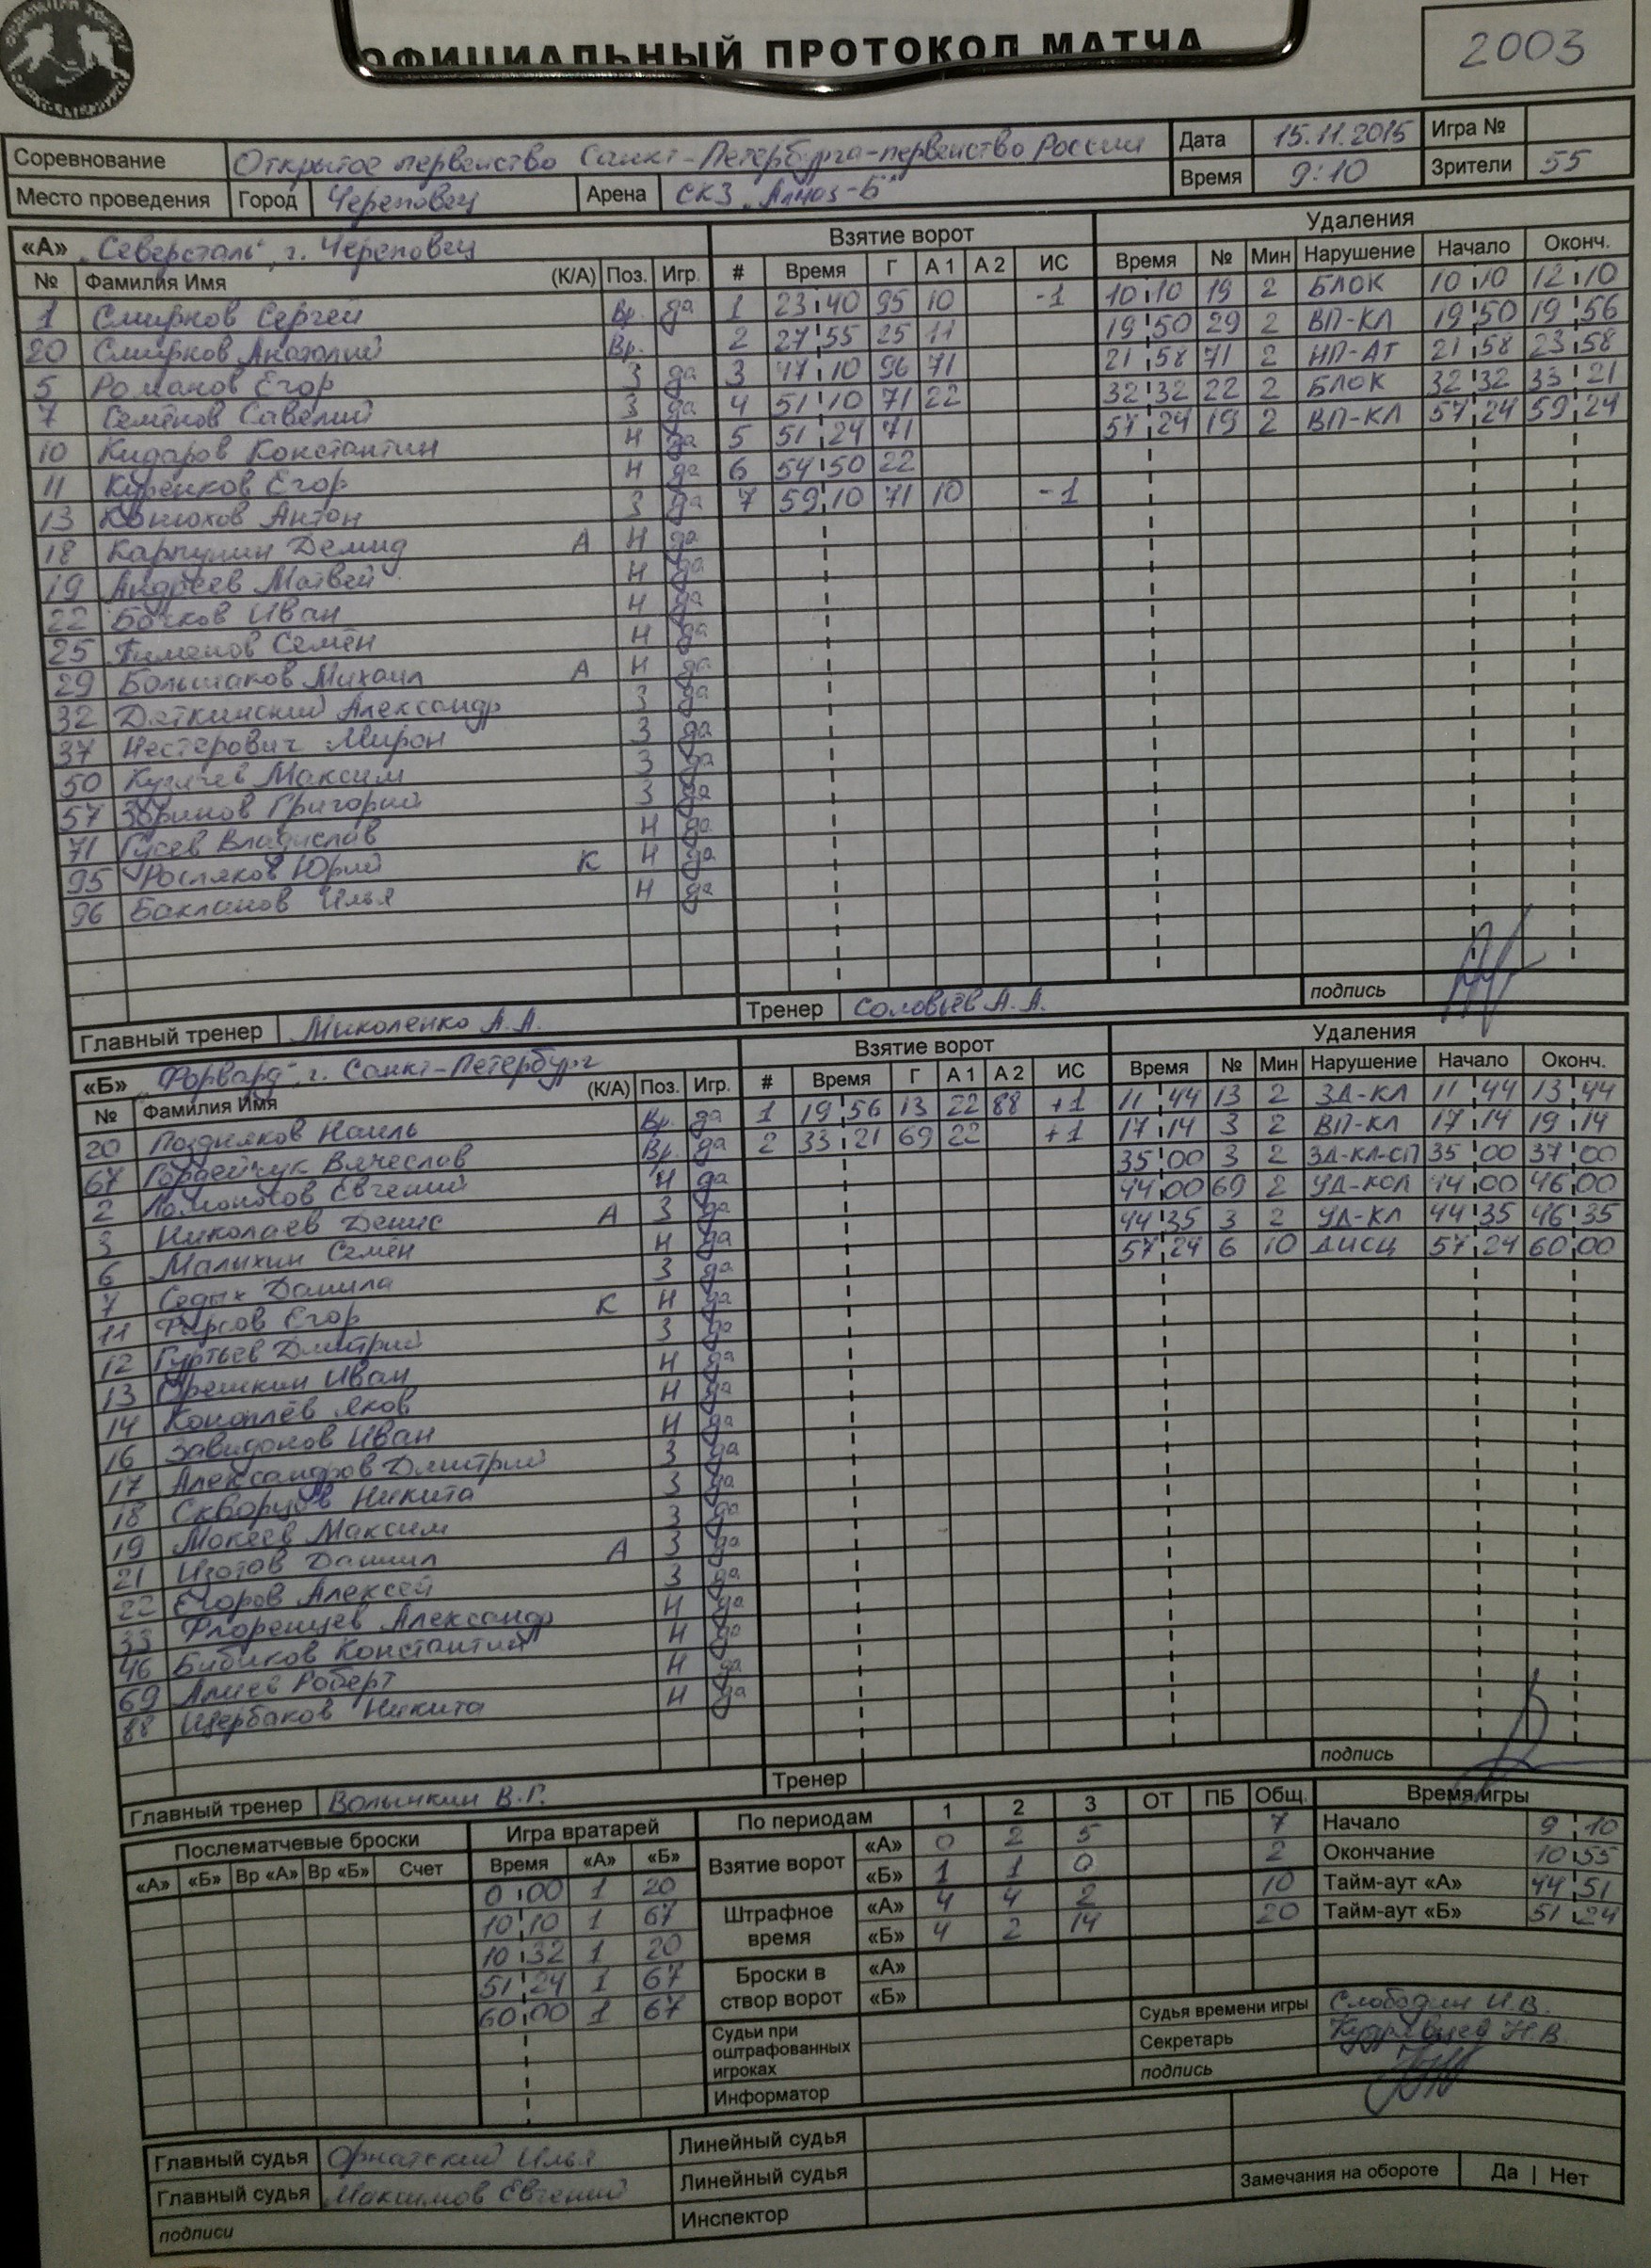 ОФИЦИАЛЬНЫЙ ПРОТОКОЛ МАТЧА
2003
Соревнование Открытое первенство Санкт-Петербурга-первенство России Дата 15.11.2015 Игра №
Место проведения Город Череповец Арена СКЗ "Алмаз-Б" Время 9:10 Зрители 55
«А» "Северсталь", г. Череповец Взятие ворот Удаления
№ Фамилия Имя (К/А) Поз. Игр. # Время Г А 1 А 2 ИС Время № Мин Нарушение Начало Оконч.
1 Смирнов Сергей Вр. да 1 23:40 95 10 -1 10:10 19 2 БЛОК 10:10 12:10
20 Смирнов Анатолий Вр. 2 27:55 25 11 19:50 29 2 ВП-КЛ 19:50 19:56
5 Романов Егор З да 3 47:10 96 71 21:58 71 2 НП-АТ 21:58 23:58
7 Семёнов Савелий З да 4 51:10 71 22 32:32 22 2 БЛОК 32:32 33:21
10 Кидаров Константин Н да 5 51:24 71 57:24 19 2 ВП-КЛ 57:24 59:24
11 Куренков Егор Н да 6 54:50 22
13 Конюхов Антон З да 7 59:10 71 10 -1
18 Карпунин Демид А Н да
19 Андреев Матвей Н да
22 Бочков Иван Н да
25 Пименов Семён Н да
29 Большаков Михаил А Н да
32 Дяткинский Александр З да
37 Нестерович Мирон З да
50 Максим З да
57 Григорий З да
71 Гусев Владислав Н да
95 Росляков Юрий К Н да
96 Бакланов Илья Н да
Главный тренер Миколенко А.А. Тренер Соловьёв А.А. подпись
«Б» "Форвард", г. Санкт-Петербург Взятие ворот Удаления
№ Фамилия Имя (К/А) Поз. Игр. # Время Г А 1 А 2 ИС Время № Мин Нарушение Начало Оконч.
20 Поздняков Наиль Вр. да 1 19:56 13 22 88 +1 11:44 13 2 ЗД-КЛ 11:44 13:44
67 Гордейчук Вячеслав Вр. да 2 33:21 69 22 +1 17:14 3 2 ВП-КЛ 17:14 19:14
2 Ломоносов Евгений Н да 35:00 3 2 ЗД-КЛ-СП 35:00 37:00
3 Николаев Денис А З да 44:00 69 2 УД-КОЛ 44:00 46:00
6 Малыхин Семён Н да 44:35 3 2 УД-КЛ 44:35 46:35
7 Седых Данила З да 57:24 6 10 ДИСЦ 57:24 60:00
11 Фирсов Егор К Н да
12 Гуртьев Дмитрий З да
13 Орешкин Иван Н да
14 Коноплёв Яков Н да
16 Завидонов Иван Н да
17 Александров Дмитрий З да
18 Скворцов Никита З да
19 Мокеев Максим З да
21 Изотов Даниил А З да
22 Егоров Алексей З да
33 Флоренцев Александр Н да
46 Бибиков Константин Н да
69 Алиев Роберт Н да
88 Щербаков Никита Н да
Главный тренер Волынкин В.Г. Тренер подпись
Послематчевые броски Игра вратарей По периодам 1 2 3 ОТ ПБ Общ. Время игры
«А» «Б» Вр «А» Вр «Б» Счет Время «А» «Б»
Взятие ворот «А» 0 2 5 7 Начало 9:10
0:00 1 20 «Б» 1 1 0 2 Окончание 10:55
10:10 1 67 Штрафное время «А» 4 4 2 10 Тайм-аут «А» 44:51
10:32 1 20 «Б» 4 2 14 20 Тайм-аут «Б» 51:24
51:24 1 67 Броски в створ ворот «А»
60:00 1 67 «Б»
Судьи при оштрафованных игроках Судья времени игры Слободин И.В.
Секретарь Н.В.
Информатор подпись
Главный судья Орнатский Илья Линейный судья
Главный судья Максимов Евгений Линейный судья Замечания на обороте Да | Нет
подписи Инспектор